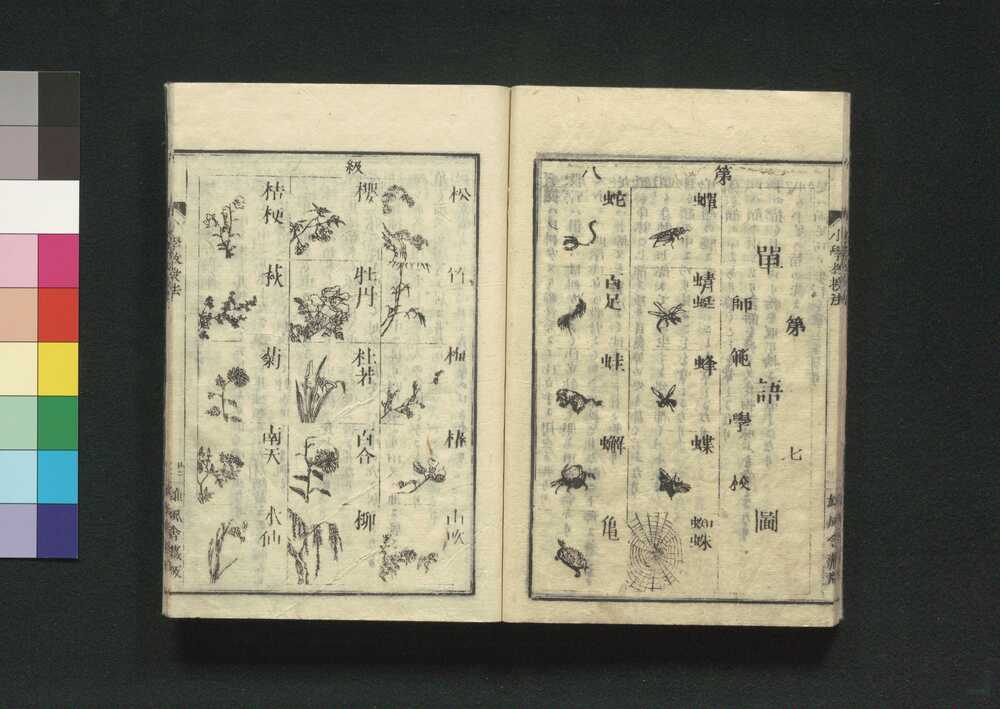 第七
單語圖
師範學校
第八級
蟬
蜻蜓
蜂
蝶
蜘蛛
蛇
百足
蛙
蠏
亀
松
竹
梅
椿
山吹
櫻
牡丹
杜若
百合
柳
桔梗
萩
菊
南天
水仙